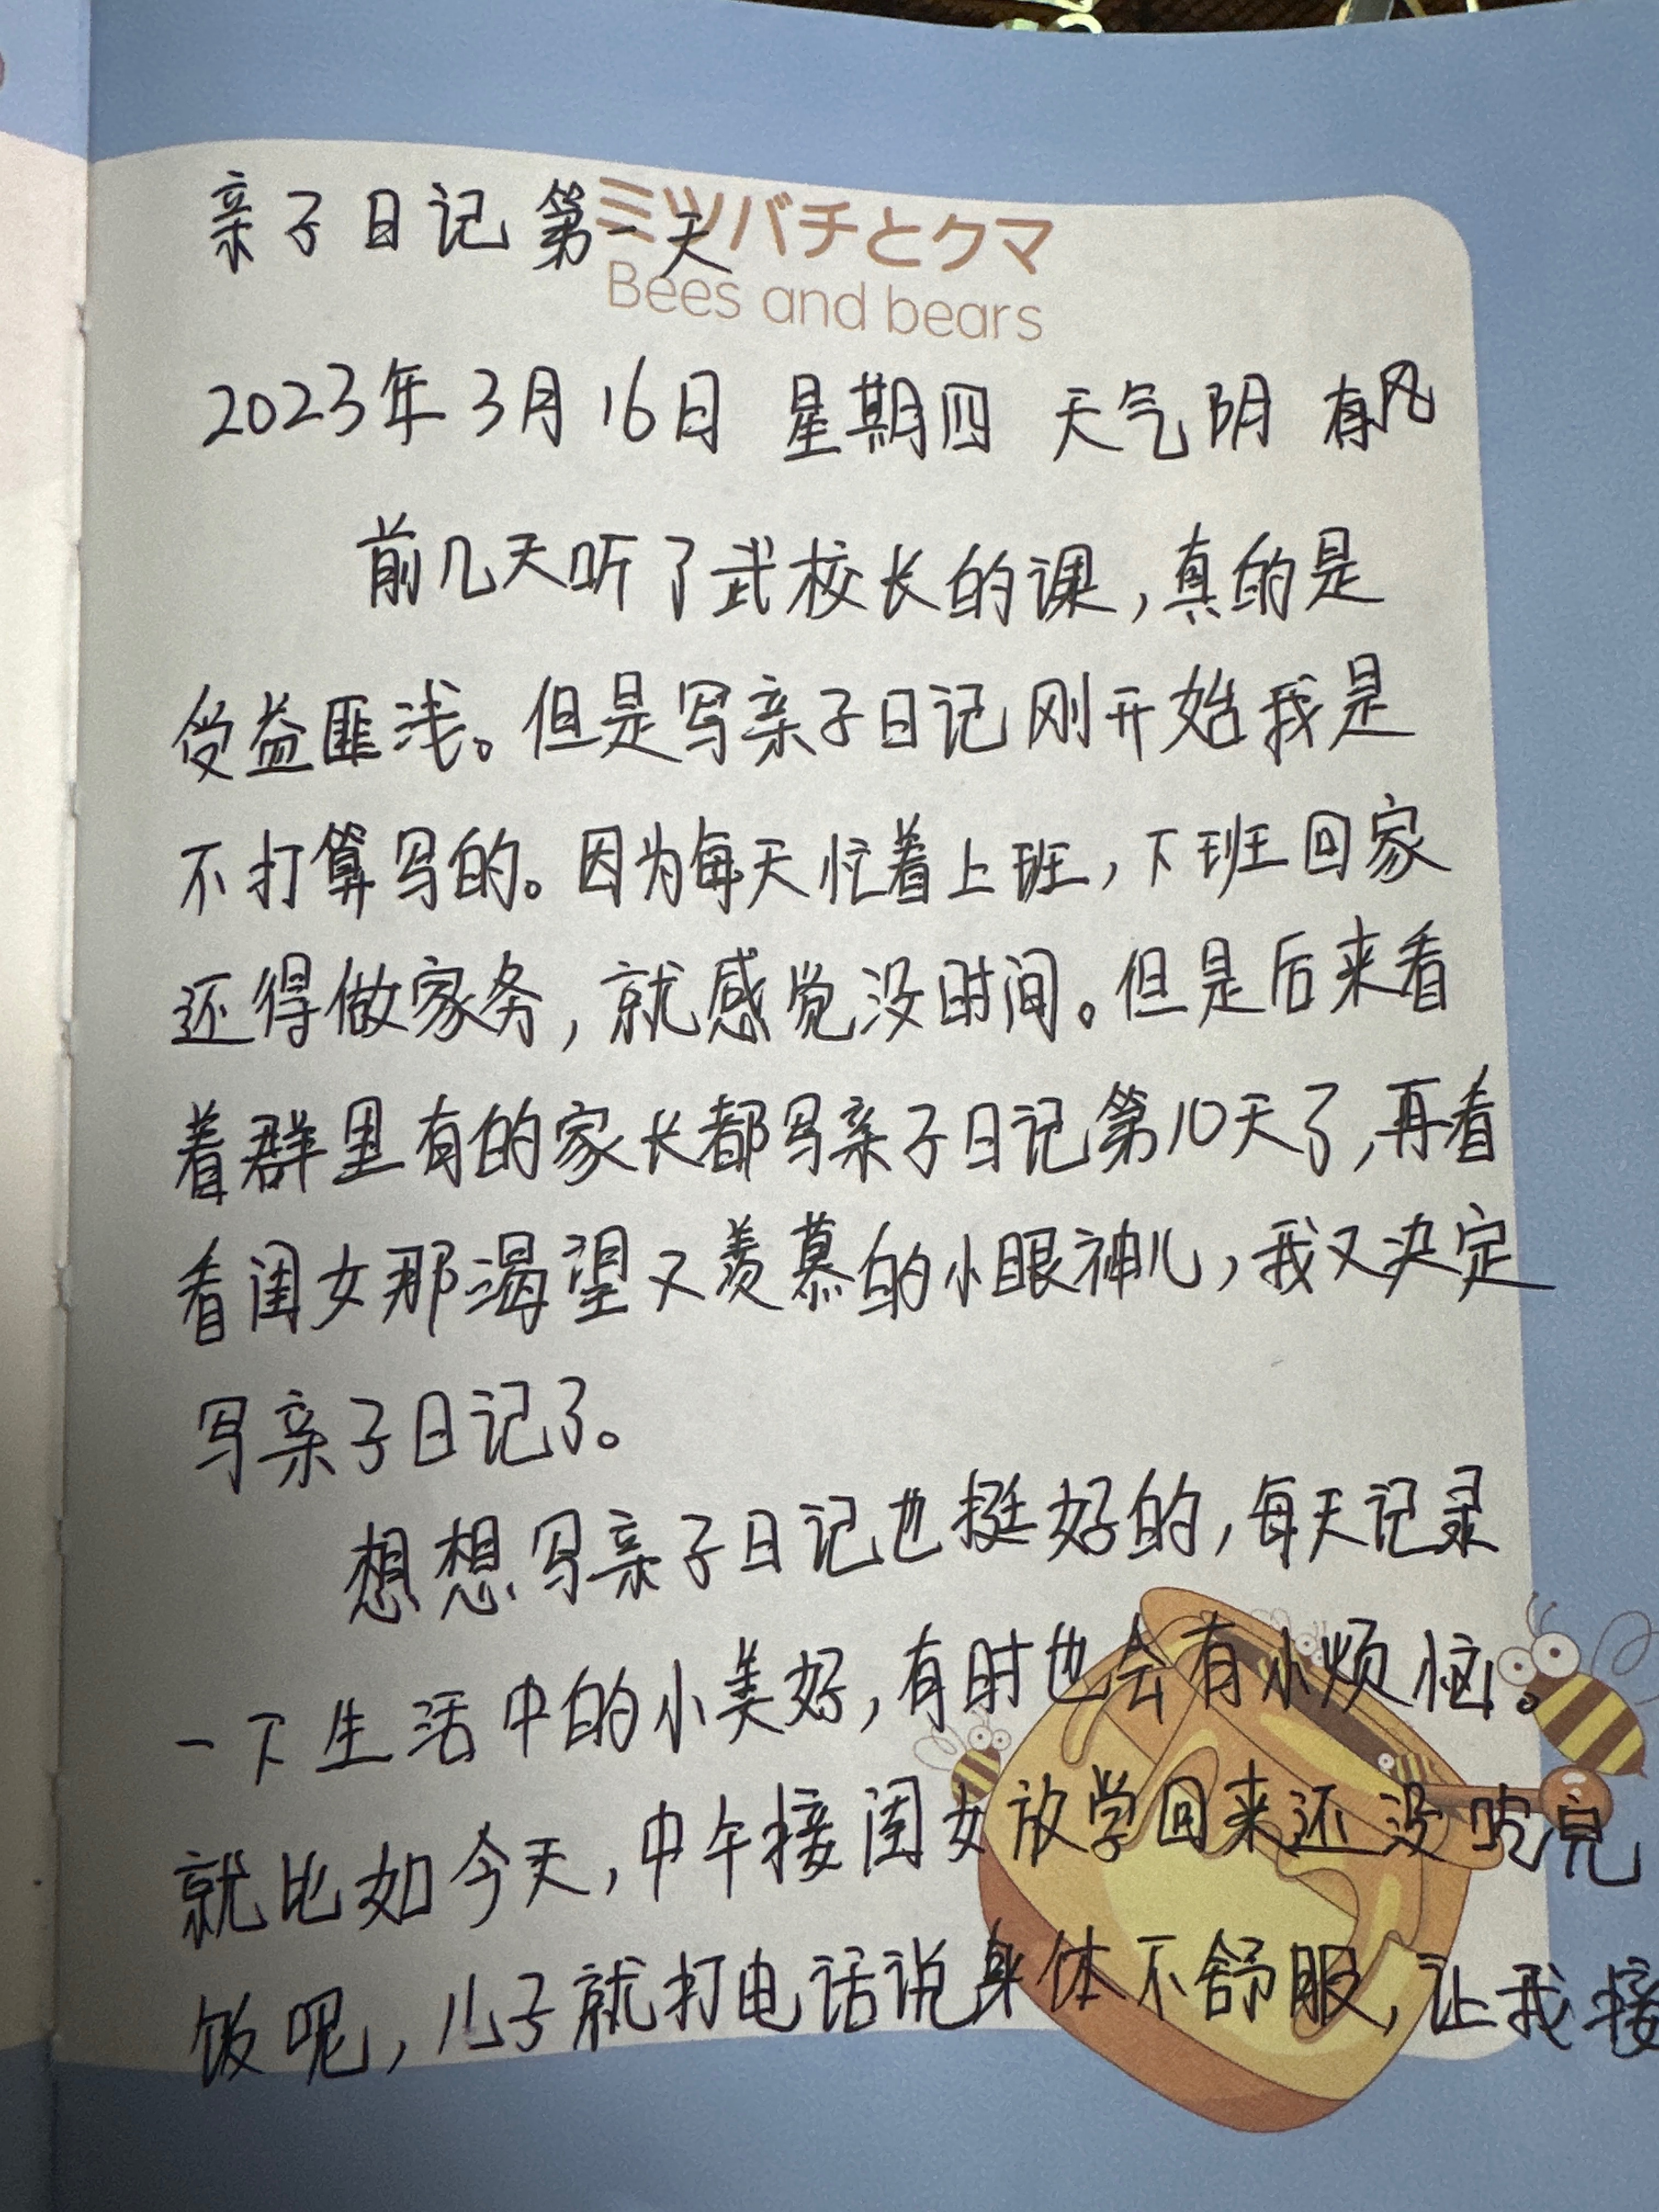 亲子日记第一天
ミツバチとクマ
Bees and bears
2023年3月16日 星期四 天气阴 有风
前几天听了武校长的课,真的是
受益匪浅。但是写亲子日记刚开始我是
不打算写的。因为每天忙着上班,下班回家
还得做家务,就感觉没时间。但是后来看
着群里有的家长都写亲子日记第10天了,再看
看闺女那渴望又羡慕的小眼神儿,我又决定
写亲子日记了。
想想写亲子日记也挺好的,每天记录
一下生活中的小美好,有时也会有小烦恼。
就比如今天,中午接闺女放学回来还没吃完
饭呢,儿子就打电话说身体不舒服,让我接